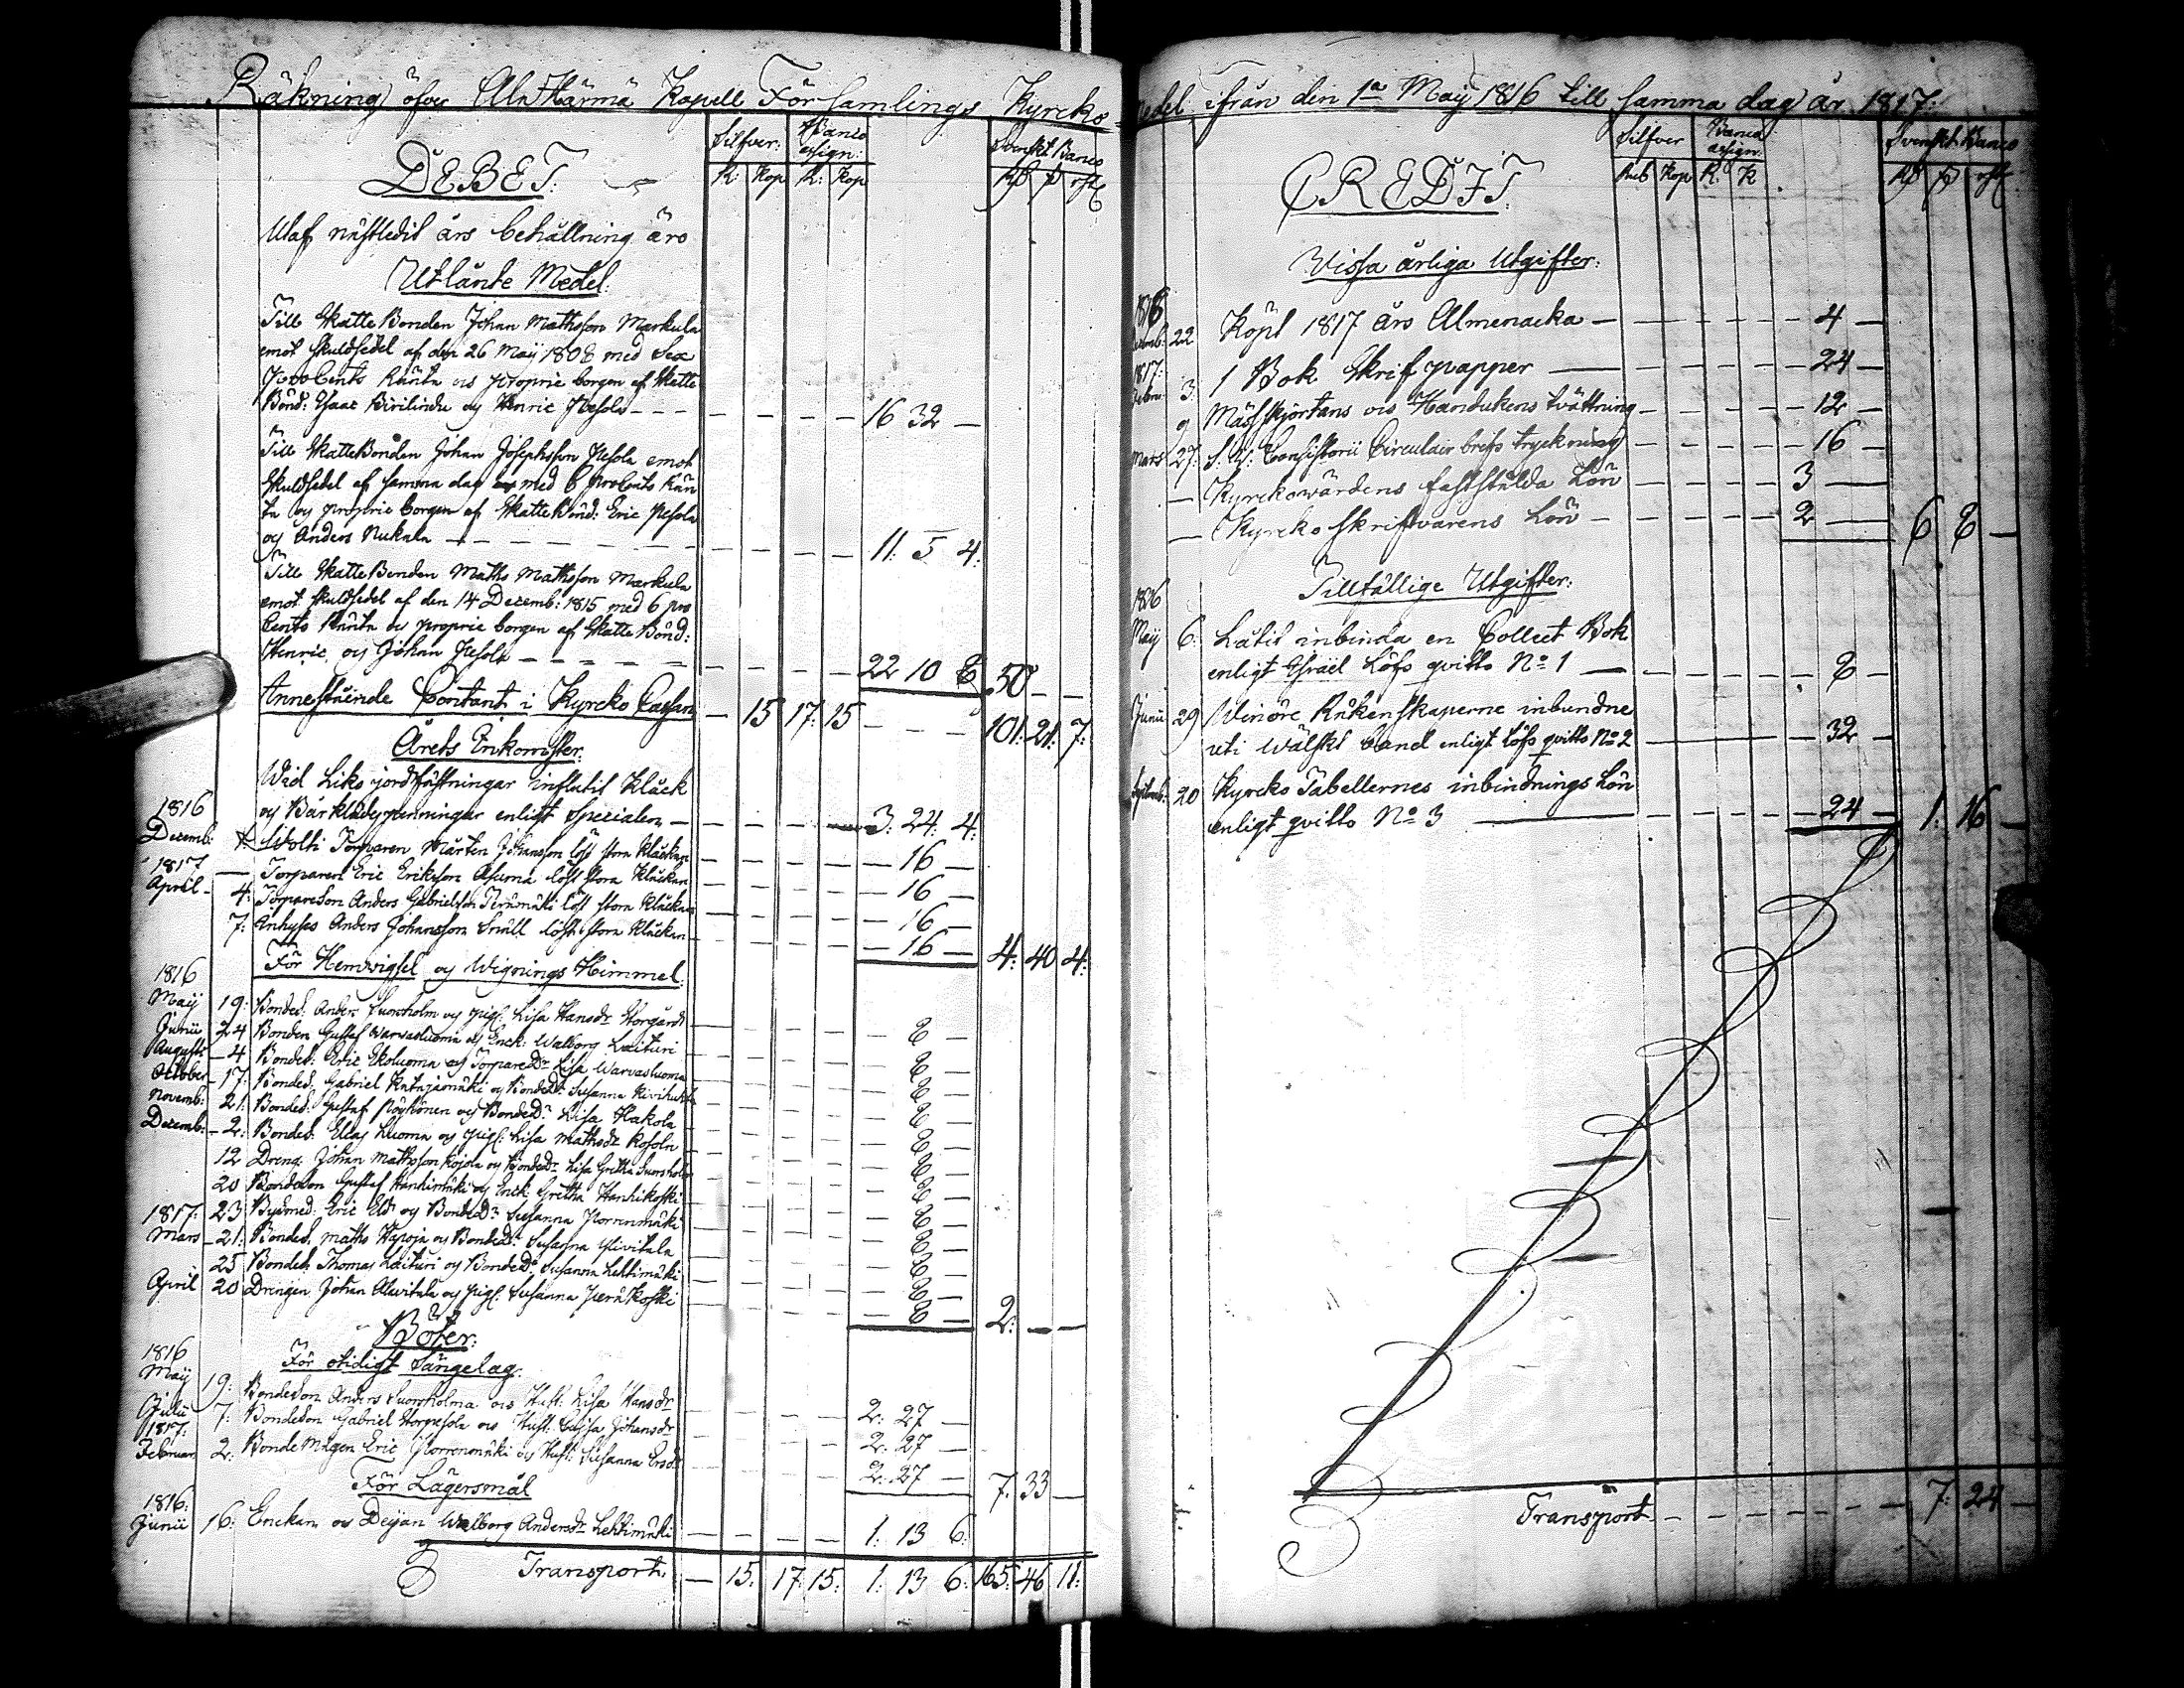 Räkning öfver Alahärmä Kapell Församlings Kyrcko
DEBET.
Silfver: Banco assign: Svenskt Banco
R: Kop R: Kop Rd ß rst
Utaf nästledit års behållning äro
Utlånte Medel.
Till Skatte Bonden Johan Mathsson Markula
emot skuldsedel af den 26 Maij 1808 med Sex
proCents Ränta och proprie borgen af Skatte
Bönd: Isaac och Henric Pesola - - - 16 32 -
Till Skatte Bonden Johan Josephsson Pesola emot
Skuldsedel af samma dag med 6 proCents Rän
ta och proprie borgen af Skatte Bönd: Eric Pesola
och Anders Nukala - - - 11: 5 4:
Till Skatte Bonden Maths Mathsson Markula
emot skuldsedel af den 14 Decemb: 1815 med 6 pro
Cents Ränta och proprie borgen af Skatte Bönd:
Henric och Johan Pesola - - - 22 10 8 50 - -
Innestående Contant i Kyrcko Cassan - 15 17: 15 - - - 101: 21: 7:
Årets Inkomster:
Wid Liks jordfästningar influtit Kläck
1816 och Bårklädespenningar enligt Specialen - 3: 24: 4:
Decemb: Torparen Mårten Johansson löst stora Kläckan - 16 -
1817 - Torparen Eric Ericksson Asuma löst stora Kläckan - 16 -
April - 4: Torpareson Anders Gabrielsson löst stora Kläckan - 16 -
7: Inhyses Anders Johansson Snäll löst stora Kläckan - 16 - 4: 40 4:
För Hemvigsel och Wignings Himmel:
1816
Maij 19: Bondes: Anders Suorsholm och pig: Lisa Hansdr Storgårds - 8 -
Junii 24 Bonden Gustaf Warvasluoma och Enck: Walborg Laituri - 8 -
Augusti - 4 Bondes: Eric Ekoluoma och Torpare Dr Lisa Warvasluoma - 8 -
October - 17: Bondes: Gabriel Katajamäki och BondeDr Susanna - 8 -
Novemb: 21: Bondes: Gustaf Pöyhönen och BondeDr Lisa Hakola - 8 -
Decemb: - 2: Bondes: Elias Luoma och pig: Lisa Mathsdr Kosola - 8 -
12 Dreng: Johan Mathsson Kojola och BondeDr Lisa Gretha Suorsholm - 8 -
20 Bondeson Gustaf Hanhimäki och Enck Gretha Hanhikoski - 8 -
1817: 23 Eric och BondeDr Susanna Porrenmäki - 8 -
Mars - 21: Bondes: Maths Hapoja och BondeDr Susanna Ylivitala - 8 -
25 Bondes: Thomas Laituri och BondeDr Susanna Lehtimäki - 8 -
April 20 Drengen Johan Alavitala och pig: Susanna Peräkoski - 8 - 2: - -
Böter:
För otidigt Sängelag:
1816
Maij 19: Bondeson Anders Suorsholma och Hust: Lisa Hansdr 2: 27 -
Julii 7: Bondeson Gabriel Storpesola och Hust: Caisa Johansdr 2: 27 -
1817:
Februari 2: Bonde Mågen Eric Porrenmäki och Hust: Susanna Ersdr 2: 27 - 7: 33 -
För Lägersmål
1816:
Junii 16: Enckan och Deijan Walborg Andersdr Lehtimäki - - - 1: 13 6:
Transport: - 15: 17: 15: 1: 13 6: 165: 46 11:
medel ifrån den 1a Maij 1816 till samma dag år 1817:
CREDIT.
Silfver Banco assign: Svenskt Banco
Rub Kop R: K Rd ß rst
Wissa årliga Utgifter:
1816
Decemb: 22 Köpt 1817 års Almenacka - - - 4 -
1817:
Febru 3: 1 Bok Skrifpapper - - - 24 -
9 Mässkjortans och Handukens tvättning - - - 12 -
Mars 27: Consistorii Circulair brefs tryckning - - - 16 -
- Kyrckowärdens faststälda Lön - - - 3 -
- Kyrcko skrifvarens Lön - - - 2 - 6 8 -
Tillfällige Utgifter:
1816
Maij 6: Låtit inbinda en Collect Bok
enligt Israël Löfs qvitto No 1 - - - 8 -
Junii 29 Räkenskaperne inbundne
uti wälskt band enligt Löfs qvitto No 2 - 32 -
Septemb: 20 Kyrcko Tabellernes inbindnings Lön
enligt qvitto No 3 - 24 - 1: 16 -
Transport - - - 7: 24 -